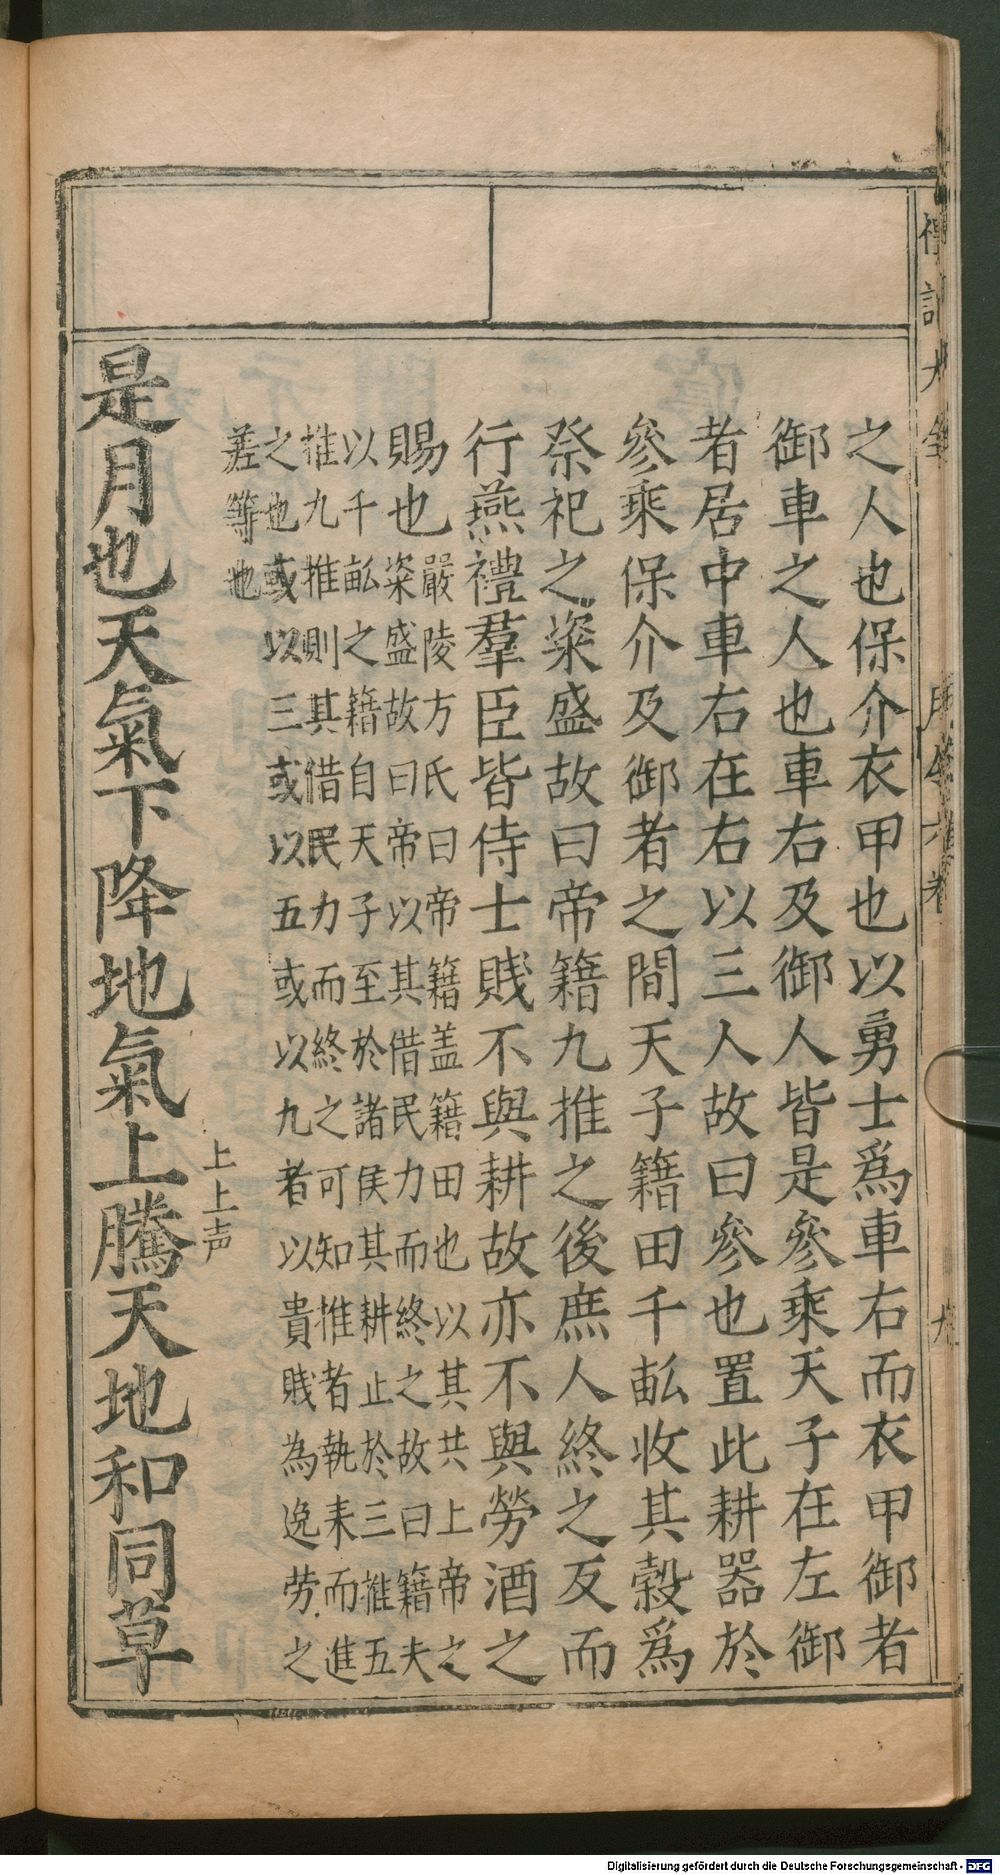 之人也保介衣甲也以勇士爲車右而衣甲御者
御車之人也車右及御人皆是參乘天子在左御
者居中車右在右以三人故曰參也置此耕器於
參乘保介及御者之間天子籍田千畝收其穀爲
祭祀之粢盛故曰帝籍九推之後庶人終之反而
行燕禮羣臣皆侍士賤不與耕故亦不與勞酒之
賜也
嚴陵方氏曰帝籍盖籍田也以其共上帝之
粢盛故曰帝以其借民力而終之故曰籍夫
以千畝之籍自天子至於諸侯其耕止於三推五
推九推則其借民力而終之可知推者執耒而進
之也或以三或以五或以九者以貴賤為逸劳之
差等也
是月也天氣下降地氣上騰天地和同草
上上声
月令六卷
Digitalisierung gefördert durch die Deutsche Forschungsgemeinschaft - DFG